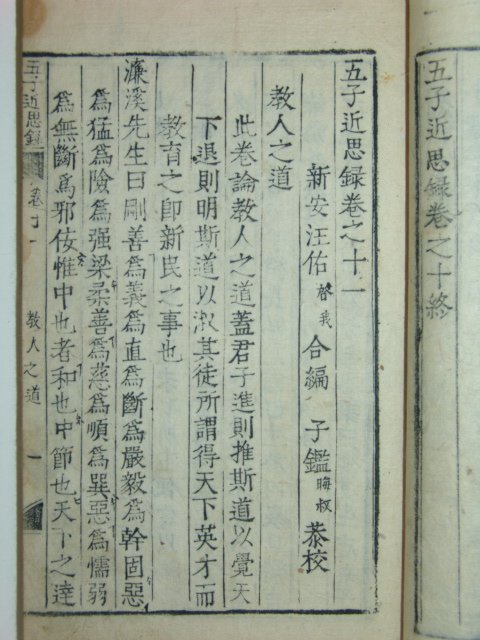 五子近思録卷之十終
五子近思録卷之十一
新安汪佑啓我合編 子鑑晦叔叅校
教人之道
此卷論教人之道蓋君子進則推斯道以覺天
下退則明斯道以淑其徒所謂得天下英才而
教育之卽新民之事也
濂溪先生曰剛善爲義爲直爲斷爲嚴毅爲幹固惡
爲猛爲險爲强梁柔善爲慈爲順爲巽惡爲懦弱
爲無斷爲邪佞惟中也者和也中節也天下之達
五子近思録 卷十一 教人之道 一